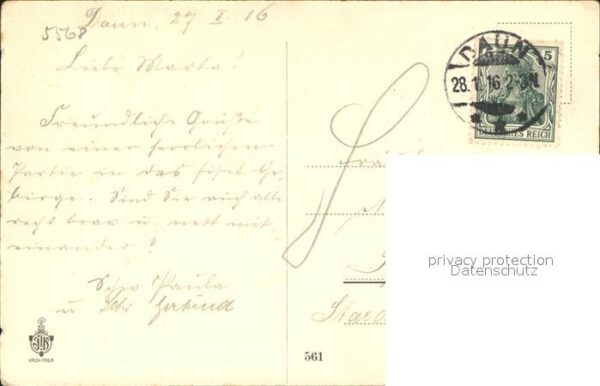 5568
Daun, 27 I. 16
Liebe Marta!
Freundliche Grüße
von einer herrlichen
Partie in das Eifel-Ge-
birge. Sind Sie auch alle
recht brav u. nett mit-
einander?
Paula
u
DAUN
28.1.16. 2-3N.
5
DEUTSCHES REICH
privacy protection
Datenschutz
561